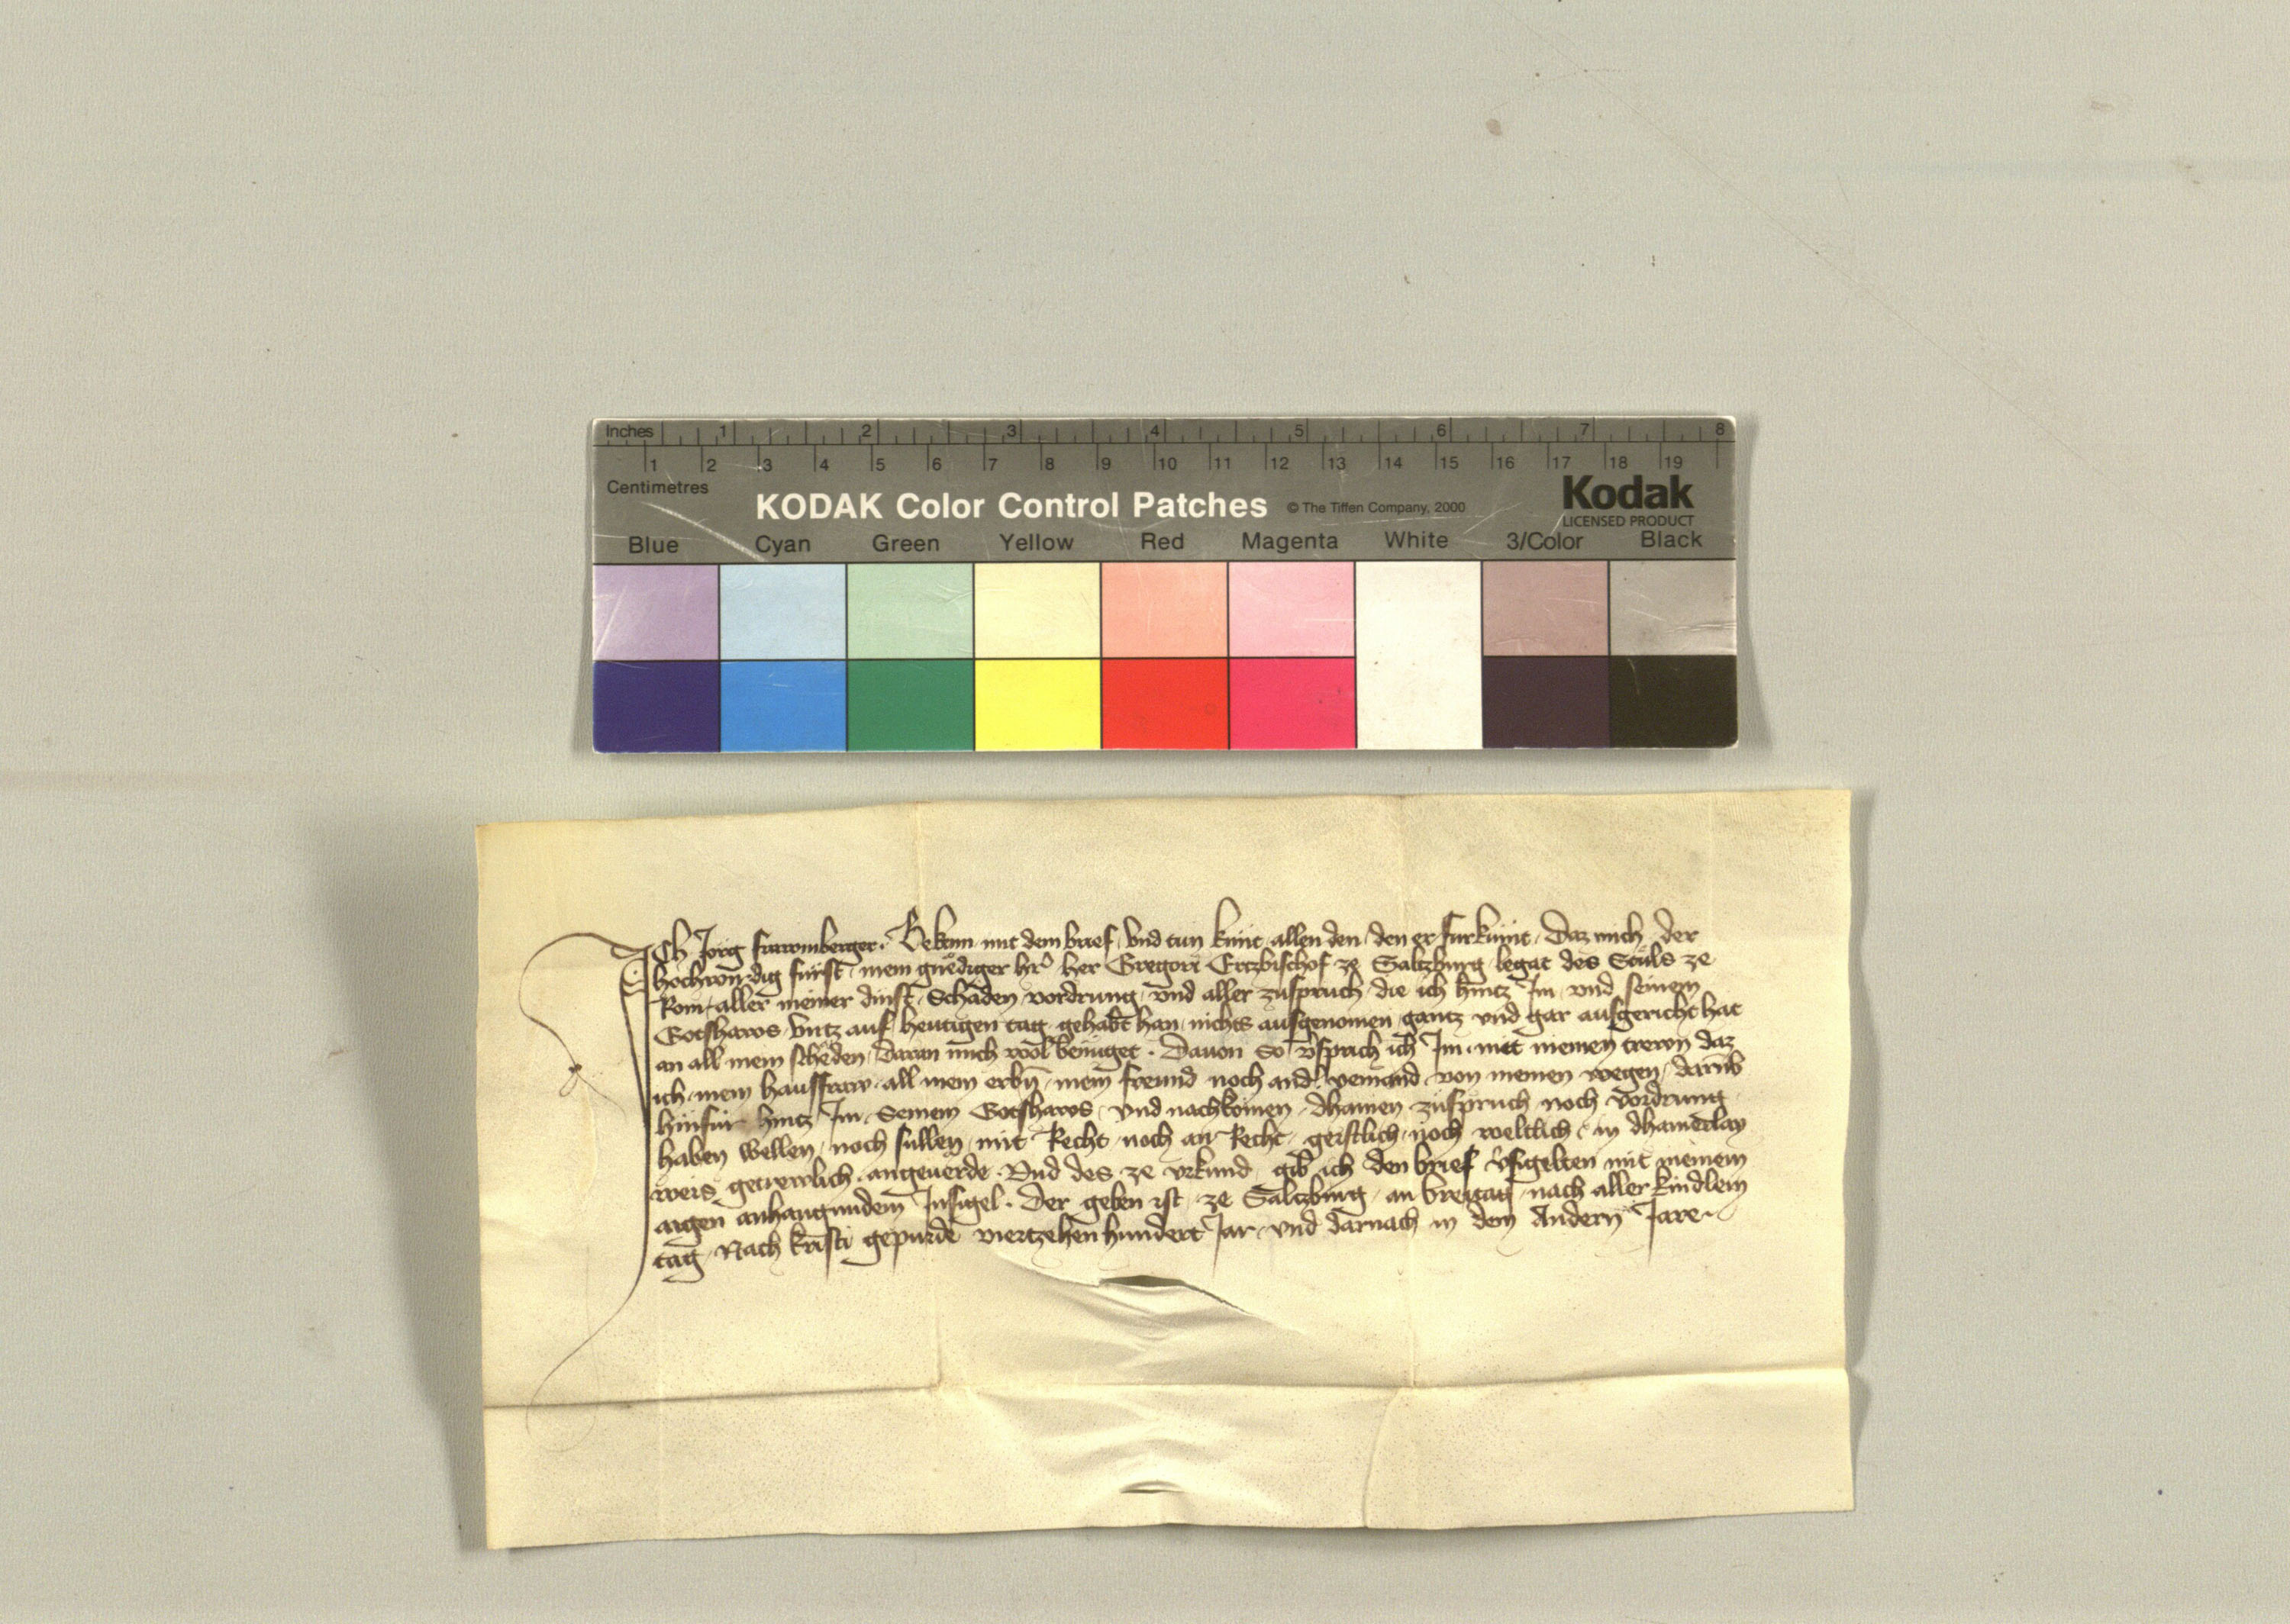 Inches 1 2 3 4 5 6 7 8
1 2 3 4 5 6 7 8 9 10 11 12 13 14 15 16 17 18 19
Centimetres
KODAK Color Control Patches © The Tiffen Company, 2000 Kodak
LICENSED PRODUCT
Blue Cyan Green Yellow Red Magenta White 3/Color Black
Ich Jorg Frawnberger. Bekenn mit dem brief, vnd tun kunt allen den, den er furkumt, Daz mich der
hochwirdig fürst, mein gnediger hr her Gregori Ertzbischof ze Saltzburg legat des Stuls ze
Rom, aller meiner dinst, Schäden, vordrung, vnd aller zuspruch, die ich hintz Im, vnd seinem
Gotshaws, vntz auf heutigen tag, gehabt han, nichts ausgenomen, gantz vnd gar ausgericht hat
an all mein scheden, daran mich wol benüget. Dauon so vsprich ich Im, mit meinen trewn daz
ich, mein hausfraw, all mein erbn, mein freund noch and yemand von meinen wegen, darüb
hinfür hintz Im, Seinem Gotshaws, vnd nachkomen, dhainen zuspruch noch vordrung,
haben wellen, noch sullen, mit Recht, noch an Recht, geistlich, noch weltlich, in dhainerlay
weis, getrewlich, angeuerde. Vnd des ze vrkund, gib ich den brief vsigelten mit meinem
aigen anhangundem Insigel. Der geben ist, ze Saltzburg, an vreitag, nach aller kindlein
tag, Nach kristi gepurde viertzehenhundert Jar, vnd darnach in dem Andern Jare